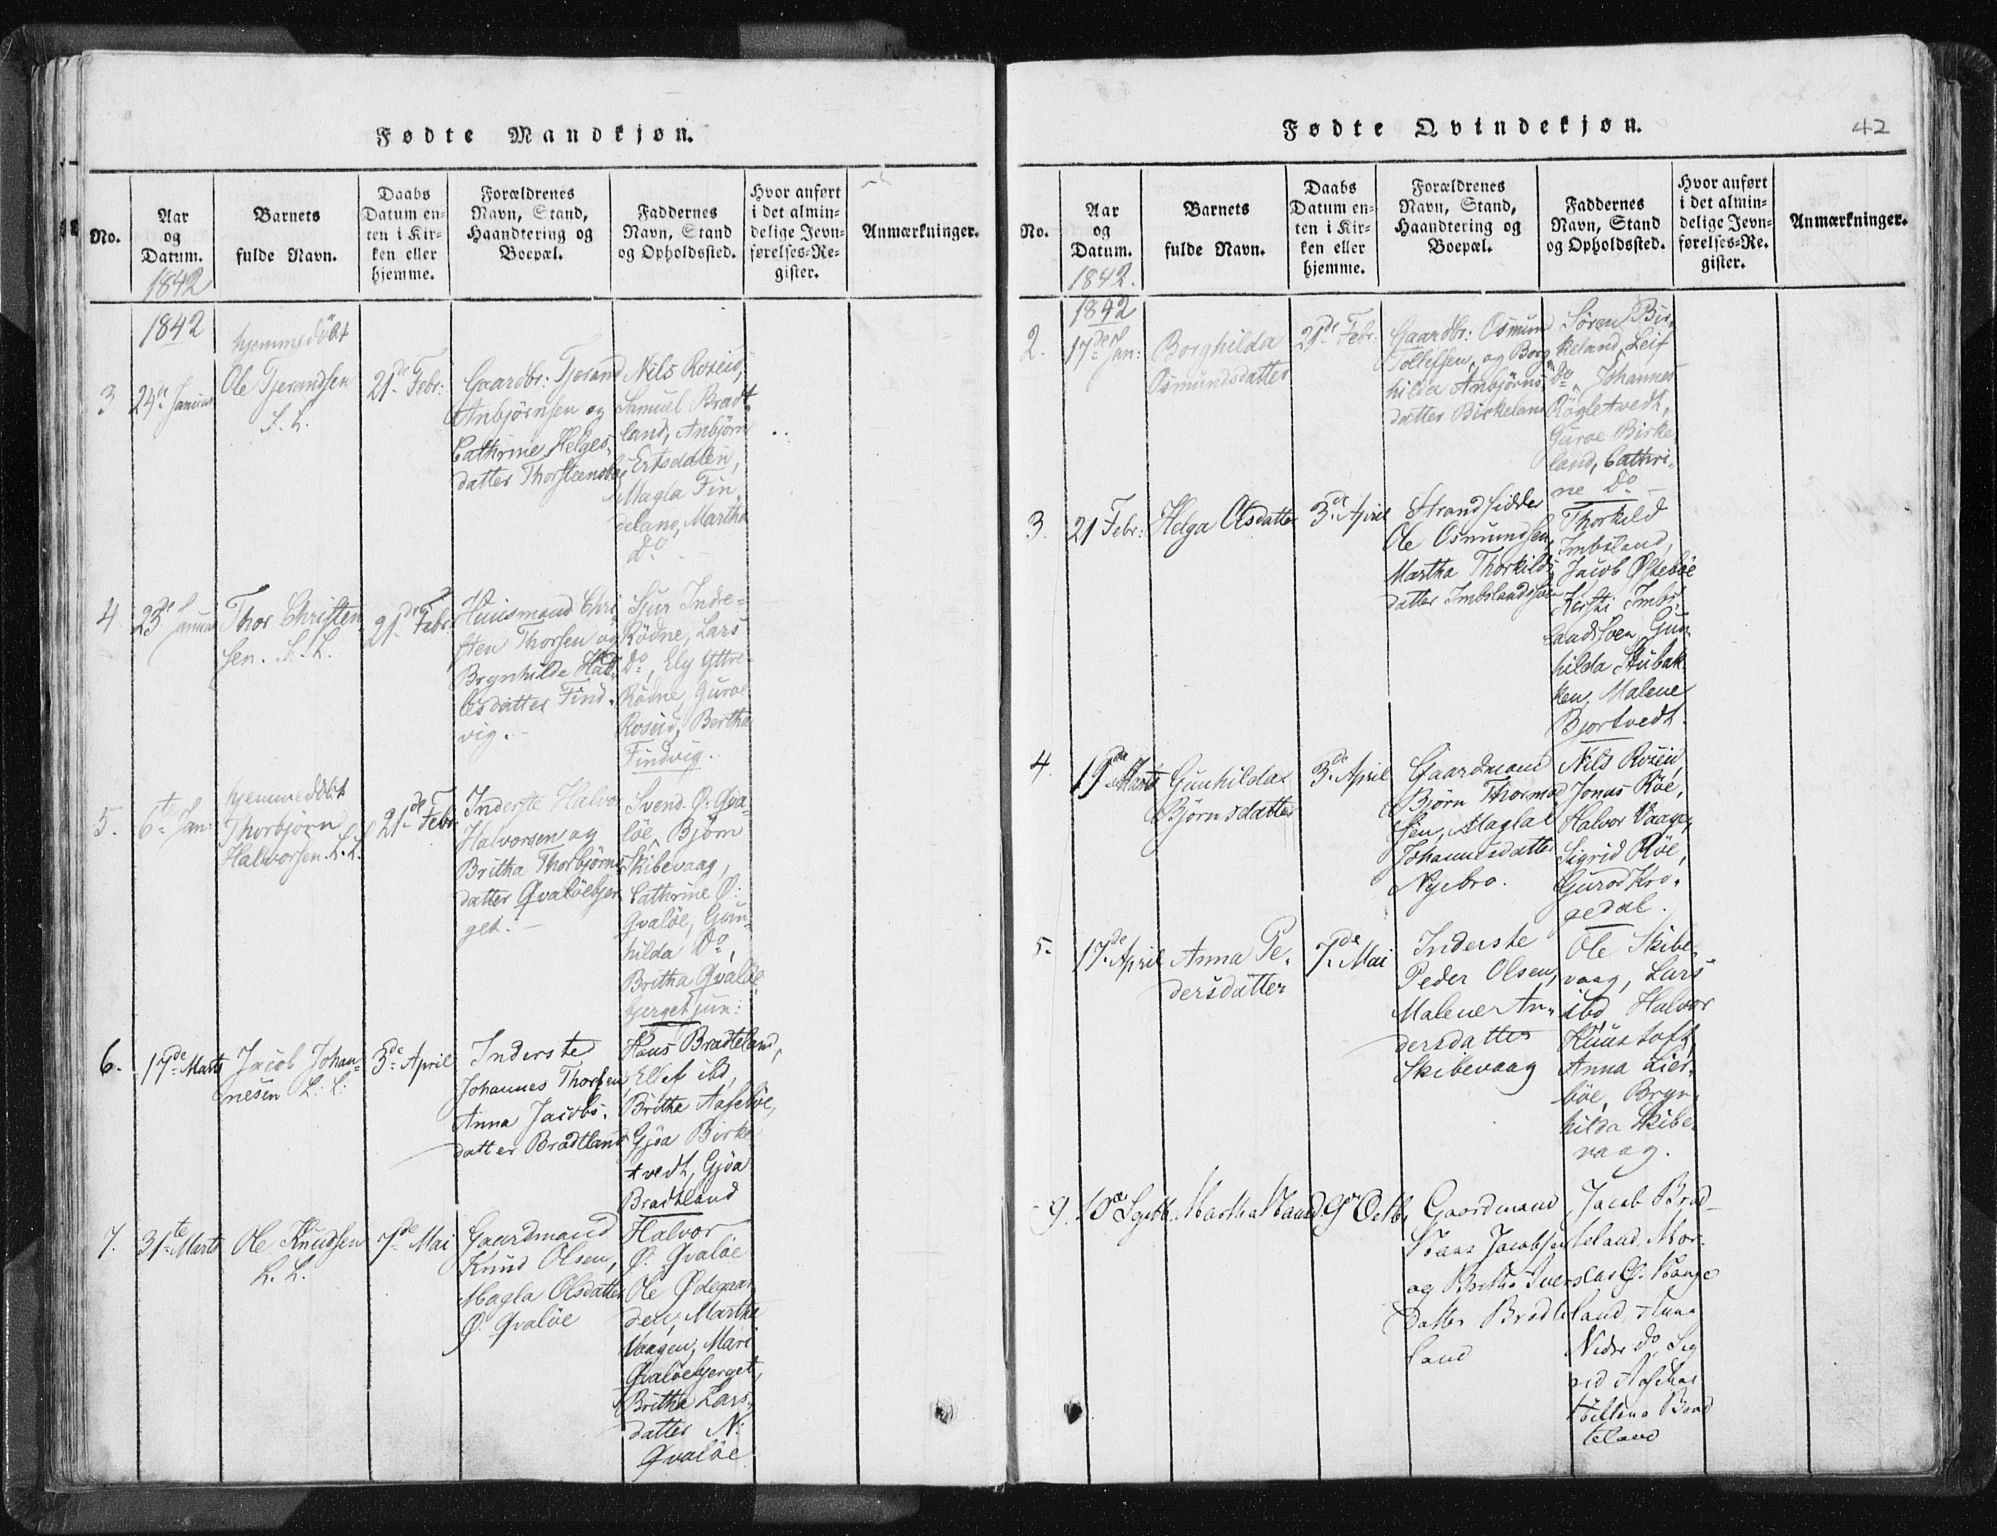 Fødte Mandkjøn.
No.
Aar
og
Datum.
1842
Barnets
fulde Navn.
Daabs
Datum en-
ten i Kir-
ken eller
hjemme.
Forældrenes
Navn, Stand,
Haandtering og
Boepæl.
Faddernes
Navn, Stand
og Opholdssted.
Hvor anført
i det almin-
delige Jevn-
førelses-Re-
gister.
Anmærkninger.
1842
3.
24de Januar
hjemmedöbt
Ole Tjerandsen
S. L.
21de Febr:
Gaardbr: Tjerand
Anbjörnsen og
Cathrine Helges-
datter
Nils Roseid,
Samuel Bradt-
land, Anbjörn
Ertsdalen,
Magla Fin-
deland, Martha
Do
4
23de Januar
Thor Christen-
sen. S. L.
21de Febr:
Huusmand Chri-
sten Thorsen og
Brynhilde
datter Find-
vig.
Sjur Indre-
Rödne, Lars
Do, Ely Yttre-
Rödne, Guroe
Roseid, Bertha
Findvig.
5.
6te Jan:
hjemmedöbt
Thorbjörn
Halvorsen. L. L.
21de Febr:
Inderste Halvor
Halvorsen og
Britha Thorbjörns-
datter Qvalöebjer-
get.
Svend Ø: Qva-
löe, Björn
Skibevaag,
Cathrine Ø:
Qvalöe, Gun-
hilda Do,
Britha Qvalöe-
bjerget jun:
6.
17de Marts
Jacob Johan-
nesen L. L.
3de April
Inderste
Johannes Thorsen
Anna Jacobs-
datter Bradtland
Hans Bradteland,
Ellef ibd,
Britha Aaseböe,
Gjöa Birke
tvedt, Gjöa
Bradtland
7.
31te Marts
Ole Knudsen
L. L.
7de Mai
Gaardmand
Knud Olsen,
Magla Olsdatter
Ø: Qvalöe
Halvor
Ø: Qvalöe
Ole Ødegaar-
den, Martha
Vaagen, Mari
Qvalöebjerget,
Britha Lars-
datter N:
Qvalöe
Fødte Qvindekjøn.
42
No.
Aar
og
Datum.
1842.
Barnets
fulde Navn.
Daabs
Datum en-
ten i Kir-
ken eller
hjemme.
Forældrenes
Navn, Stand,
Haandtering og
Boepæl.
Faddernes
Navn, Stand
og Opholdssted.
Hvor anført
i det almin-
delige Jevn-
førelses-Re-
gister.
Anmærkninger.
1842
2.
17de Jan:
Borghilda
Osmundsdatter
21de Febr:
Gaardbr: Osmund
Tollefsen, og Borg-
hilda Anbjörns-
datter Birkeland
Sören Bir-
keland, Leif
Do, Johannes
Rögletvedt,
Guroe Birke-
land, Cathri-
ne Do
3.
21 Febr:
Helga Olsdatter
3de April
Strandsidder
Ole Osmundsen,
Martha Thorkilds-
datter
Thorkild
Imbsland,
Jacob Østeböe
Kirsti Imbs-
landsöen, Gun-
hilda Stubak-
ken, Malene
Bjortvedt.
4.
19de Marts
Gunhilda
Björnsdatter
3de April
Gaardmand
Björn Thormod-
sen, Magla
Johannesdatter
Nyebro.
Nils Roseid,
Jonas Röe,
Halvor Vaage,
Sigrid Röe,
Guroe Kro-
gedal.
5.
17de April
Anna Pe-
dersdatter
7de Mai
Inderste
Peder Olsen,
Malene An-
dersdatter
Skibevaag
Ole Skibe-
vaag, Lars
ibd, Halvor
Kuustoft,
Anna Lier-
böe, Bryn-
hilda Skibe-
vaag.
9.
10de Septbr.
Martha
9de Octbr
Gaardmand
Hans Jacobsen
og Britha Ivers-
datter Bradte-
land
Jacob Brad-
teland,
Anna
Neder Do, Sig-
rid
Brad-
teland